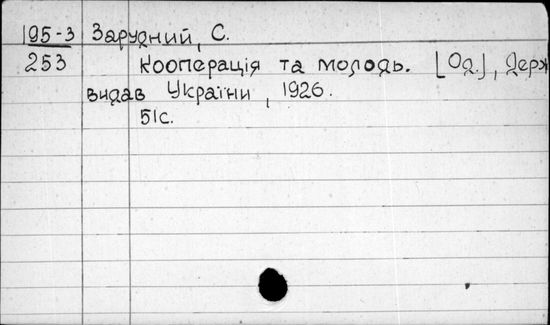 195-3 Зарудний, С.
253 Кооперація та молодь. [Од.], Держ
видав України, 1926.
51с.